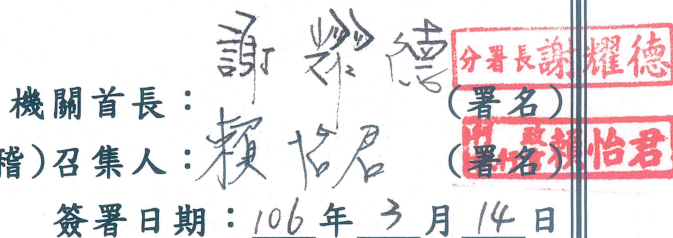 謝耀德 分署長謝耀德
機關首長：(署名)
稽)召集人：賴怡君 (署名) 賴怡君
簽署日期：106年3月14日